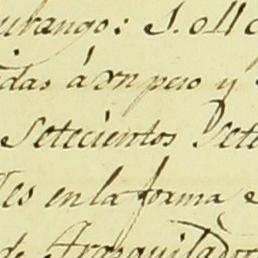 urango: S. oll
das á un peso y
Setecientos Sete
es en la forma e
de Trasquilador